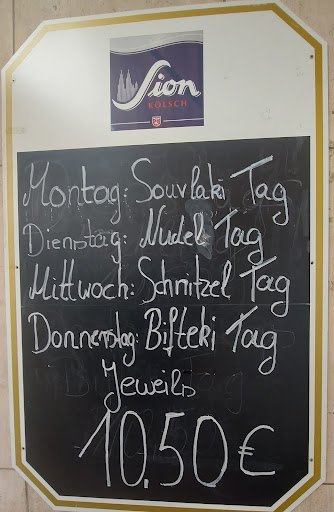 Sion
KÖLSCH
Montag: Souvlaki Tag
Dienstag: Nudel Tag
Mittwoch: Schnitzel Tag
Donnerstag: Bifteki Tag
Jeweils
10,50 €